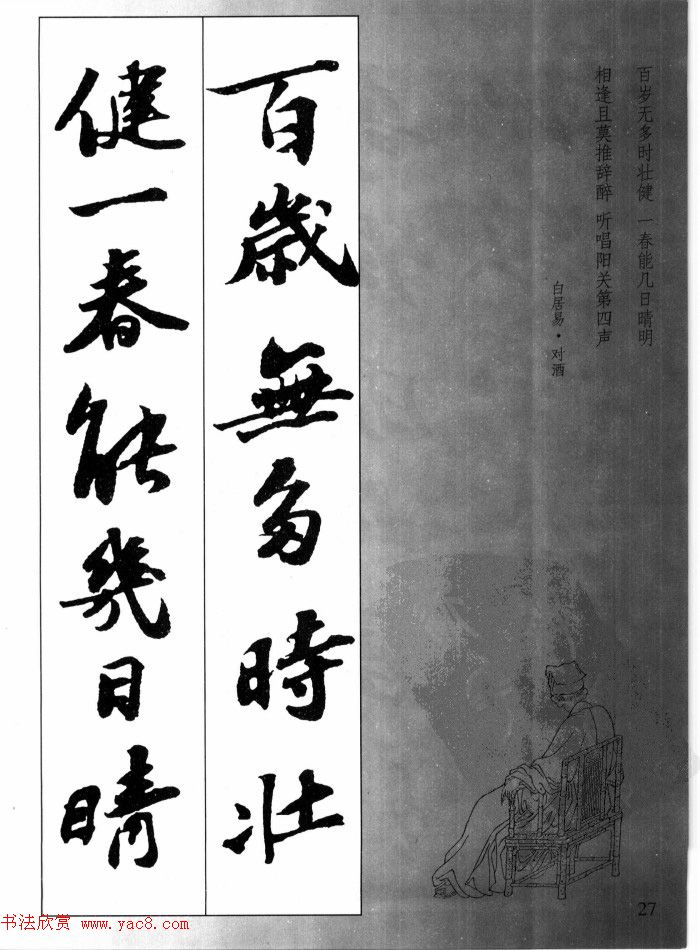 百岁无多时壮健 一春能几日晴明
相逢且莫推辞醉 听唱阳关第四声
白居易·对酒
百歲無多時壯
健一春能幾日晴
27
书法欣赏 www.yac8.com